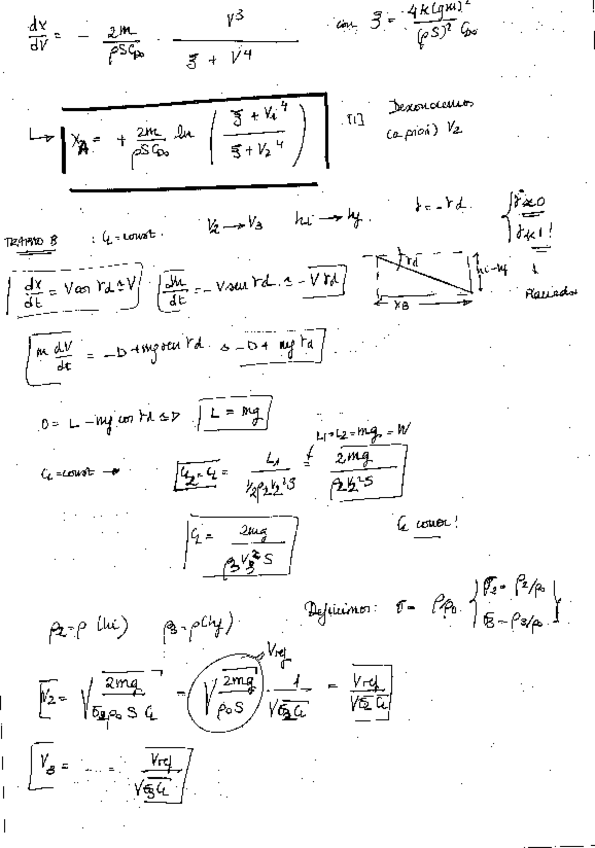 dx/dV = - 2m/ρSC_D0 · V³/(ξ + V⁴) con ξ = 4k(gm)²/(ρS)² C_D0
↳ X_A = + 2m/ρSC_D0 ln ( (ξ + V_i⁴)/(ξ + V_2⁴) ) [1] Desconocemos
(a priori) V_2
TRAMO B : C_L = const. V_2 → V_3 h_i → h_f. γ = -γ_d. { γ ≈ 0
γ << 1!
dx/dt = V cos γ_d ≃ V dh/dt = -V sen γ_d ≃ -V γ_d γ_d h_i-h_f ↓
X_B Planeador
m dV/dt = -D + mg sen γ_d ≃ -D + mg γ_d
0 = L - mg cos γ_d ≃ L = mg
L_1 = L_2 = mg = W
C_L = const → C_L2 = C_L = L_1/(½ρ_2V_2²S) = 2mg/(ρ_2V_2²S)
C_L = 2mg/(ρ_3V_3²S) C_L conoc!
ρ_2 = ρ(h_i) ρ_3 = ρ(h_f) Definimos: σ = ρ/ρ_0 { σ_2 = ρ_2/ρ_0
σ_3 = ρ_3/ρ_0 }
V_ref
V_2 = √(2mg/(σ_2ρ_0 S C_L)) = √(2mg/(ρ_0S)) · 1/√(σ_2C_L) = V_ref/√(σ_2 C_L)
V_3 = ... = V_ref/√(σ_3C_L)